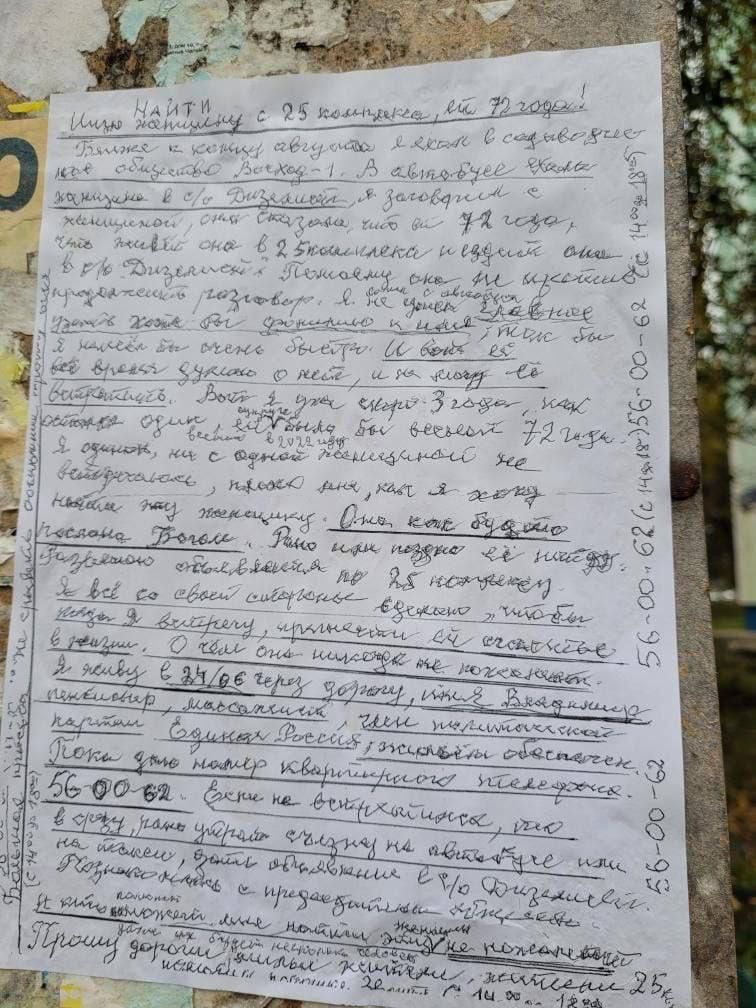 НАЙТИ
Ищу женщину с 25 комплекса, ей 72 года!
Ближе к концу августа я ехал в садоводчес-
кое общество Восход-1. В автобусе ехала
женщина в с/о Дизелист, я заговорил с
женщиной, она сказала, что ей 72 года,
что живёт она в 25 комплексе и ездит она
в с/о Дизелист. По моему она не против
продолжить разговор. Я не
узнать хотя бы фамилию и имя, так бы
я нашёл бы очень быстро. И вот
всё время думаю о ней, и не могу её
встретить. Вот я уже скоро 3 года, как
остался один, ей было бы весной 72 года.
супруге
весной в 2022 году
Я одинок, ни с одной женщиной не
встречался, плохо мне, как я хочу
найти эту женщину. Она как будто
послана Богом. Рано или поздно её найду.
Развешаю объявления по 25 комплексу.
Я всё со своей стороны сделаю, чтобы
когда я встречу, принести ей счастье
в жизни. О чём она никогда не пожалеет.
Я живу в 24/06 через дорогу, имя Владимир
пенсионер, массажист, член политической
партии Единая Россия, жильём обеспечен.
Пока даю номер квартирного телефона.
56-00-62. Если не встретимся, то
в среду, рано утром съезжу на автобусе или
на такси, дать объявление в с/о Дизелист.
Познакомлюсь с председателем
И кто поможет мне найти эту женщину не пожалеет
даже их будет несколько человек
Прошу дорогие милые жители, жители 25
56-00-62 (с 14.00 до 18.00) 56-00-62 (с 14.00 до 18.00)
56-00-62
Большая просьба не срывать объявления прошу
(с 14.00 до 18.00)